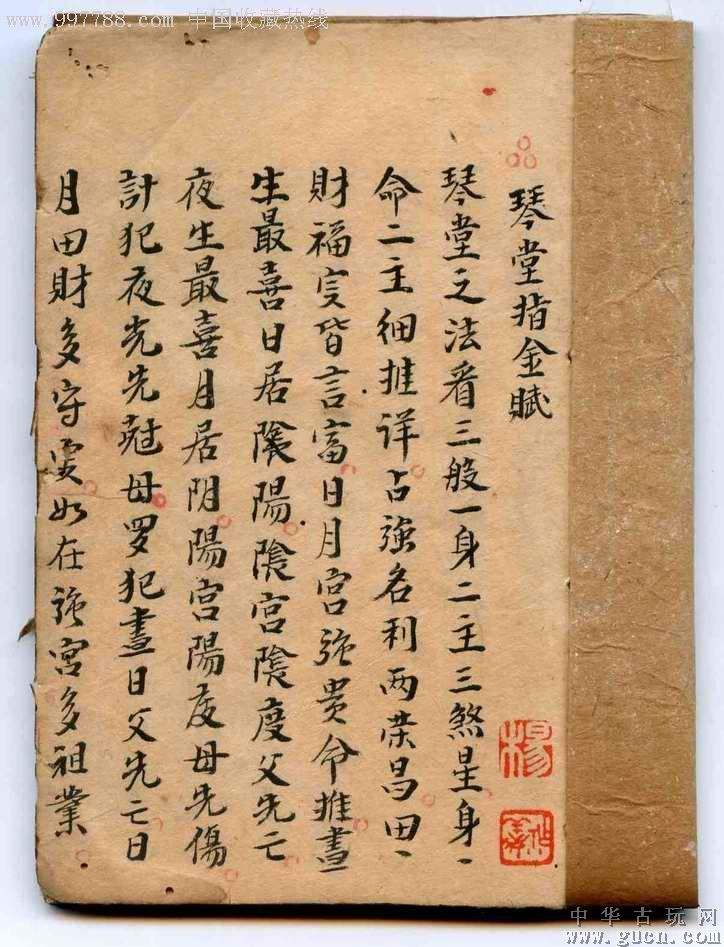 www.997788.com 中国收藏热线
琴堂指金賦
琴堂之法看三般一身二主三煞星身、
命二主细推详占強名利两荣昌田、
財福皆言富日月宫強贵命推晝
生最喜日居陰陽陰宫陰度父先亡
夜生最喜月居阴陽宫陽度母先傷
計犯夜光先尅母罗犯晝日父先亡日
月田財多守如在強宫多祖業
楊
中华古玩网
www.gucn.com